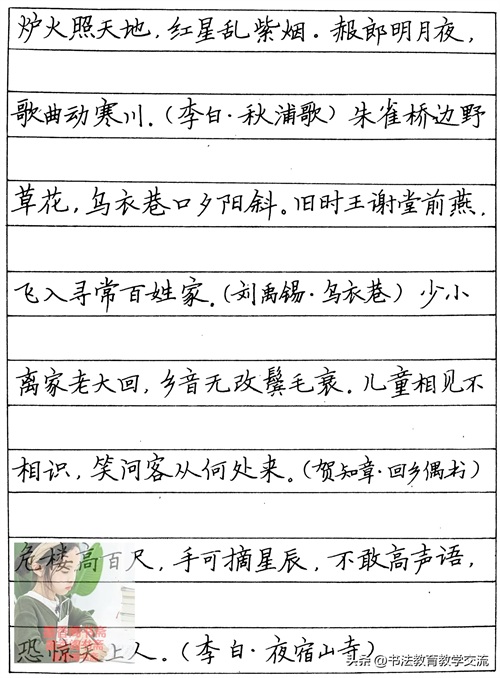 炉火照天地,红星乱紫烟.赧郎明月夜,
歌曲动寒川.(李白·秋浦歌)朱雀桥边野
草花,乌衣巷口夕阳斜。旧时王谢堂前燕.
飞入寻常百姓家.(刘禹锡·乌衣巷)少小
离家老大回,乡音无改鬓毛衰.儿童相见不
相识,笑问客从何处来。(贺知章·回乡偶书)
危楼高百尺,手可摘星辰,不敢高声语,
恐惊天上人。(李白·夜宿山寺)
头条@书法教育教学交流